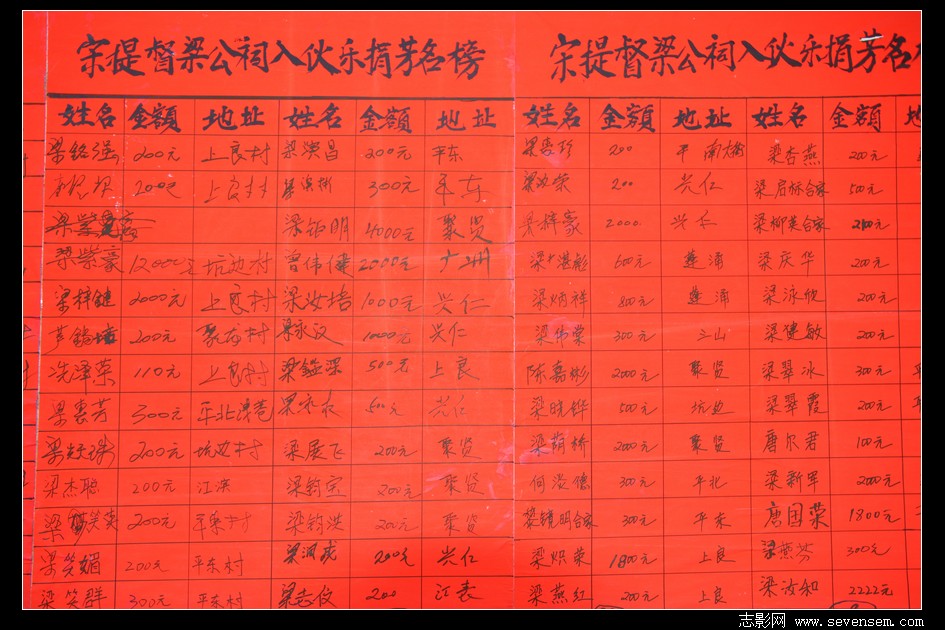 宋提督梁公祠入伙乐捐芳名榜 宋提督梁公祠入伙乐捐芳名
姓名 金額 地址 姓名 金額 地址 姓名 金額 地址 姓名 金額
梁铭强 200元 上良村 梁演昌 200元 平东 200 平 南大街 梁杏燕 200元
2000 上良村 300元 平东 200 兴仁 梁启标合家 500元
梁紫豪 梁铂明 4000元 聚贤 梁梓豪 2000 兴仁 梁柳英合家
梁紫豪 12000元 坑边村 曾伟健 2000元 广州 梁湛彪 600元 莲涌 梁庆华 200元
梁梓健 2000元 上良村 梁汝培 1000元 兴仁 梁炳祥 800元 莲涌 梁泳欣 200元
200元 村 梁永汉 1000元 兴仁 梁伟棠 300元 三山 梁健敏 200元
冼泽荣 110元 上良村 梁鎰深 500元 上良 陈嘉彬 2000元 聚贤 梁翠冰 300元
梁惠芳 300元 平北 梁 500元 兴仁 梁晓铧 500元 坑边 梁翠霞 200元
梁 200元 坑边村 梁展飞 200元 聚贤 梁荫桥 2000元 聚贤 唐尔君 100元
梁杰聪 200元 江滨 梁钧宝 200元 聚贤 何 300元 平北 梁新军 2000元
梁 笑 200元 平东村 梁钧洪 200元 聚贤 梁镜明合家 300元 平东 唐国荣 1800元
梁笑媚 200元 平东村 梁润成 200元 兴仁 梁炽荣 1800元 上良 梁燕芬 300元
梁笑群 300元 平东村 梁志仪 200 江表 梁燕红 200元 上良 梁汝和 2222元
志影网 www.sevensem.com